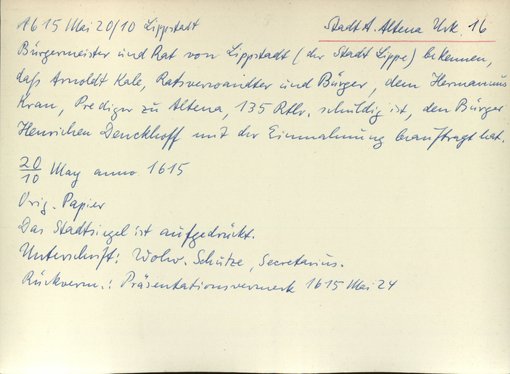 1615 Mai 20/10 Lippstadt
Stadt A. Altena Urk. 16
Bürgermeister und Rat von Lippstadt (der Stadt Lippe) bekennen,
daß Arnoldt Kale, Ratsverwandter und Bürger, dem Hermannus
Kran, Prediger zu Altena, 135 Rtlr. schuldig ist, den Bürger
Henrichen Denckhoff mit der Einmahnung beauftragt hat.
20/10 May anno 1615
Orig. Papier
Das Stadtsiegel ist aufgedrückt.
Unterschrift: Wolw. Schutze, Secretarius.
Rückverm.: Präsentationsvermerk 1615 Mai 24